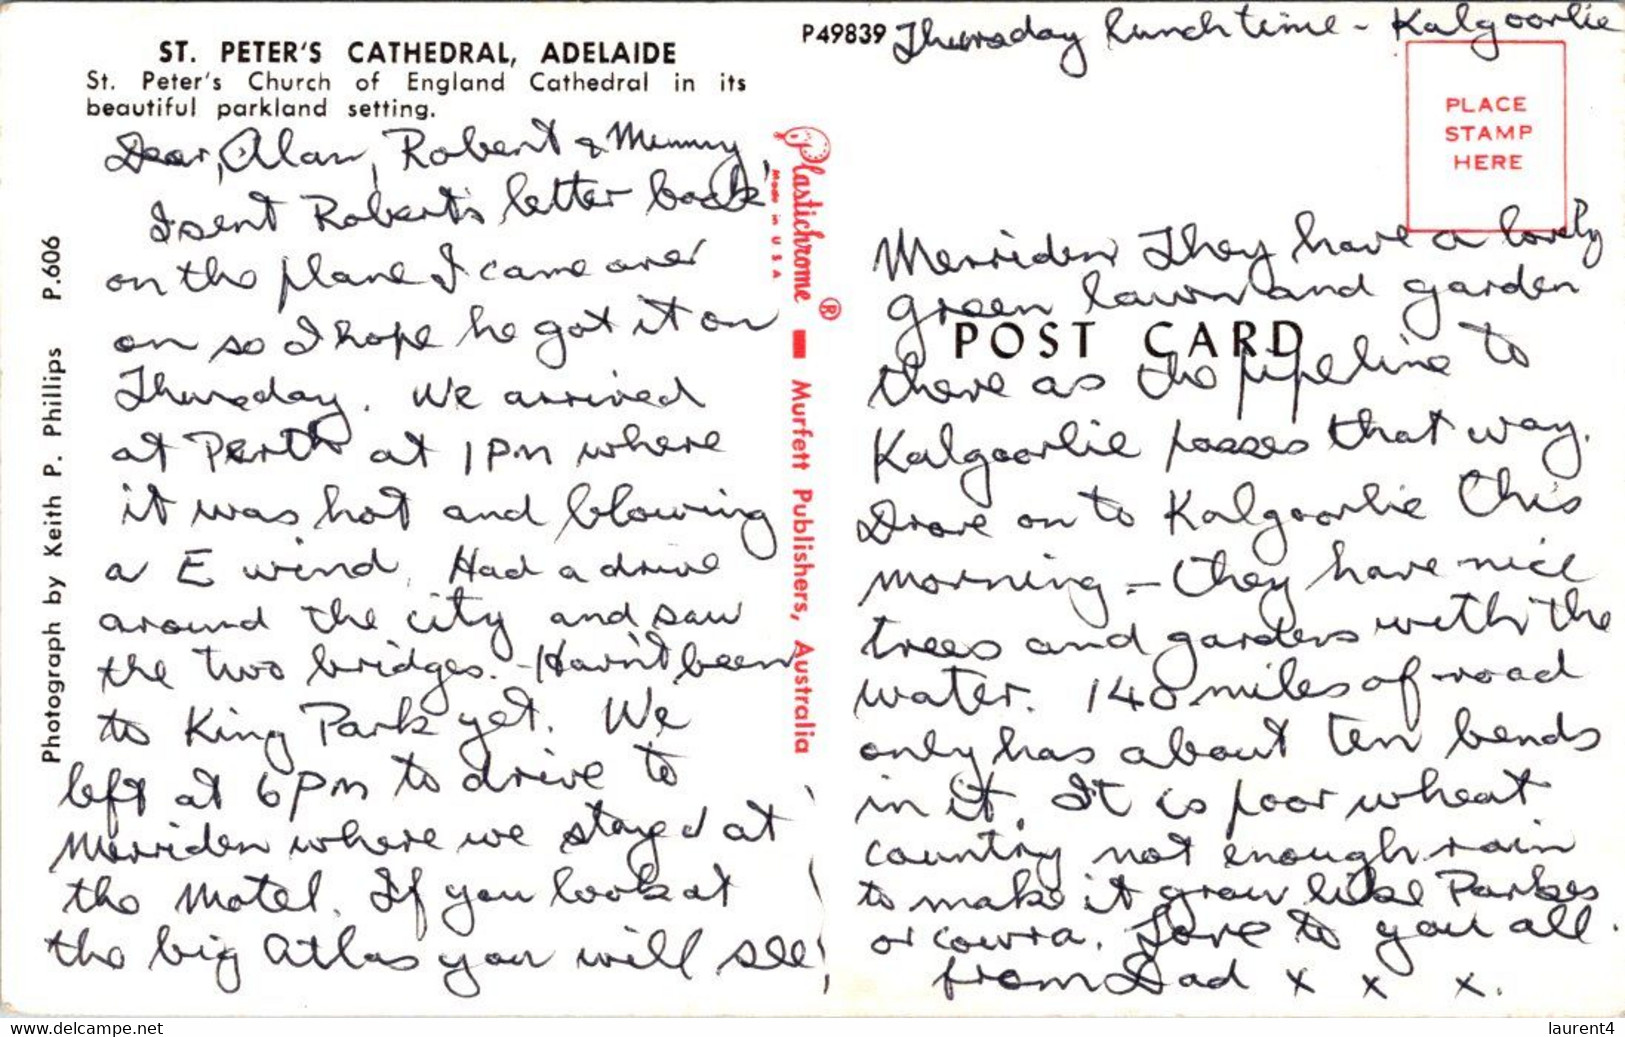 P49839 Thursday lunch time - Kalgoorlie
ST. PETER'S CATHEDRAL, ADELAIDE
St. Peter's Church of England Cathedral in its
beautiful parkland setting.
PLACE
STAMP
HERE
Dear, Alan, Robert & Mummy,
I sent Robert's letter back
on the plane I came over
on so I hope he got it on
Thursday. We arrived
at Perth at 1 pm where
it was hot and blowing
a E wind. Had a drive
around the city and saw
the two bridges. - Havn't been
to King Park yet. We
left at 6 pm to drive to
Merriden where we stayed at
the Motel. If you look at
the big Atlas you will see
Merriden They have a lovely
green lawn and garden
POST CARD
there as the pipeline to
Kalgoorlie passes that way.
Drove on to Kalgoorlie this
morning - they have nice
trees and gardens with the
water. 140 miles of road
only has about ten bends
in it. It is poor wheat
country not enough rain
to make it grow like Parkes
or Cowra. Love to you all.
from Dad x x x.
Plastichrome ®
Made in USA
Murfett Publishers, Australia
Photograph by Keith P. Phillips P.606
www.delcampe.net
laurent4